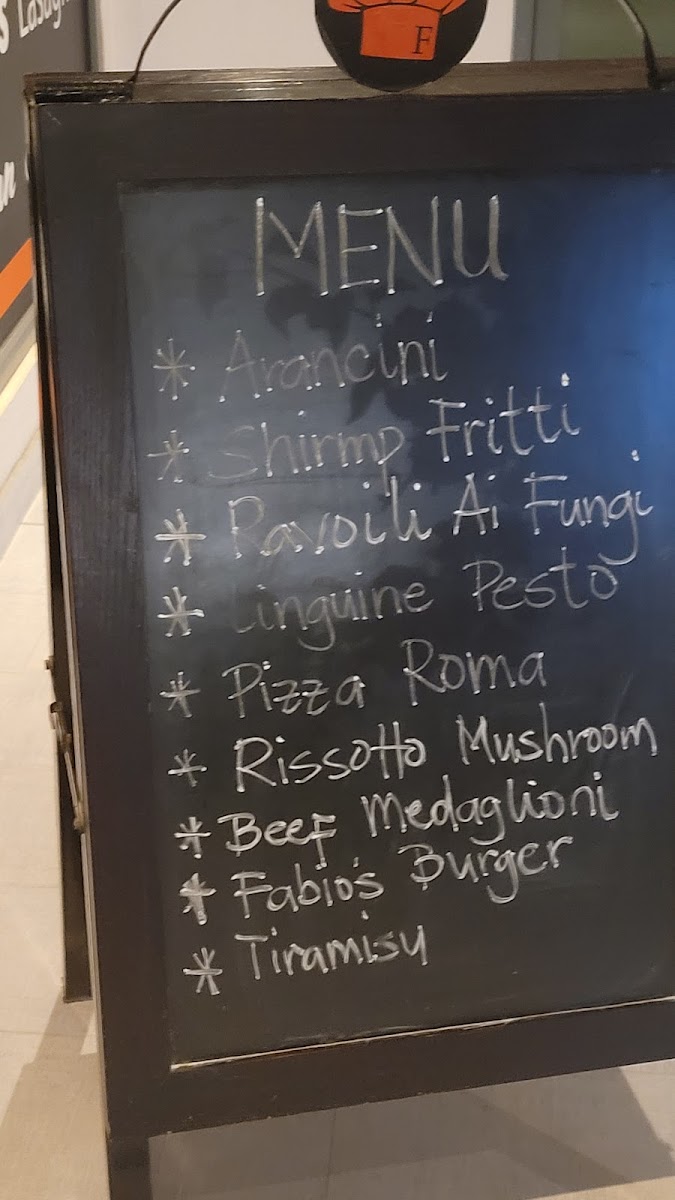 s Lasagn
F
MENU
* Arancini
* Shirmp Fritti
* Ravoili Ai Fungi
* Linguine Pesto
* Pizza Roma
* Rissotto Mushroom
* Beef Medaglioni
* Fabio's Burger
* Tiramisu